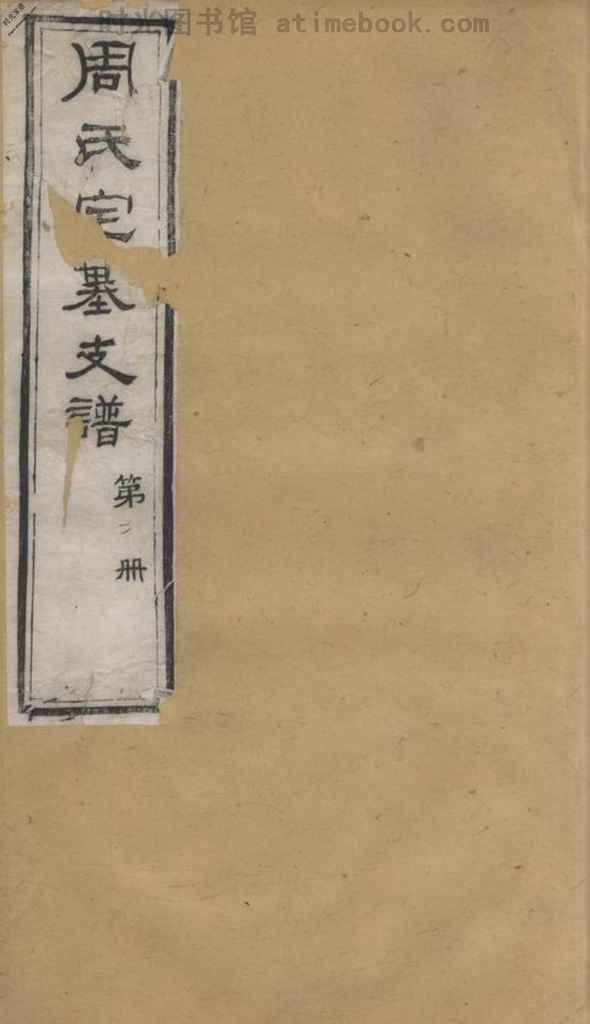 时光图书馆 atimebook.com
周氏宅基支譜
第二册